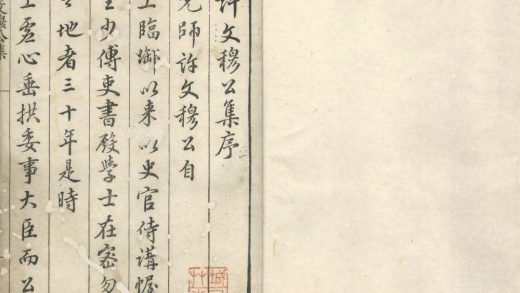 許文穆公集序
先師許文穆公自
上臨御以来以史官侍講幄
至少傅吏書殿學士在密勿
地者三十年是時
上虛心垂拱委事大臣而公
文穆公集